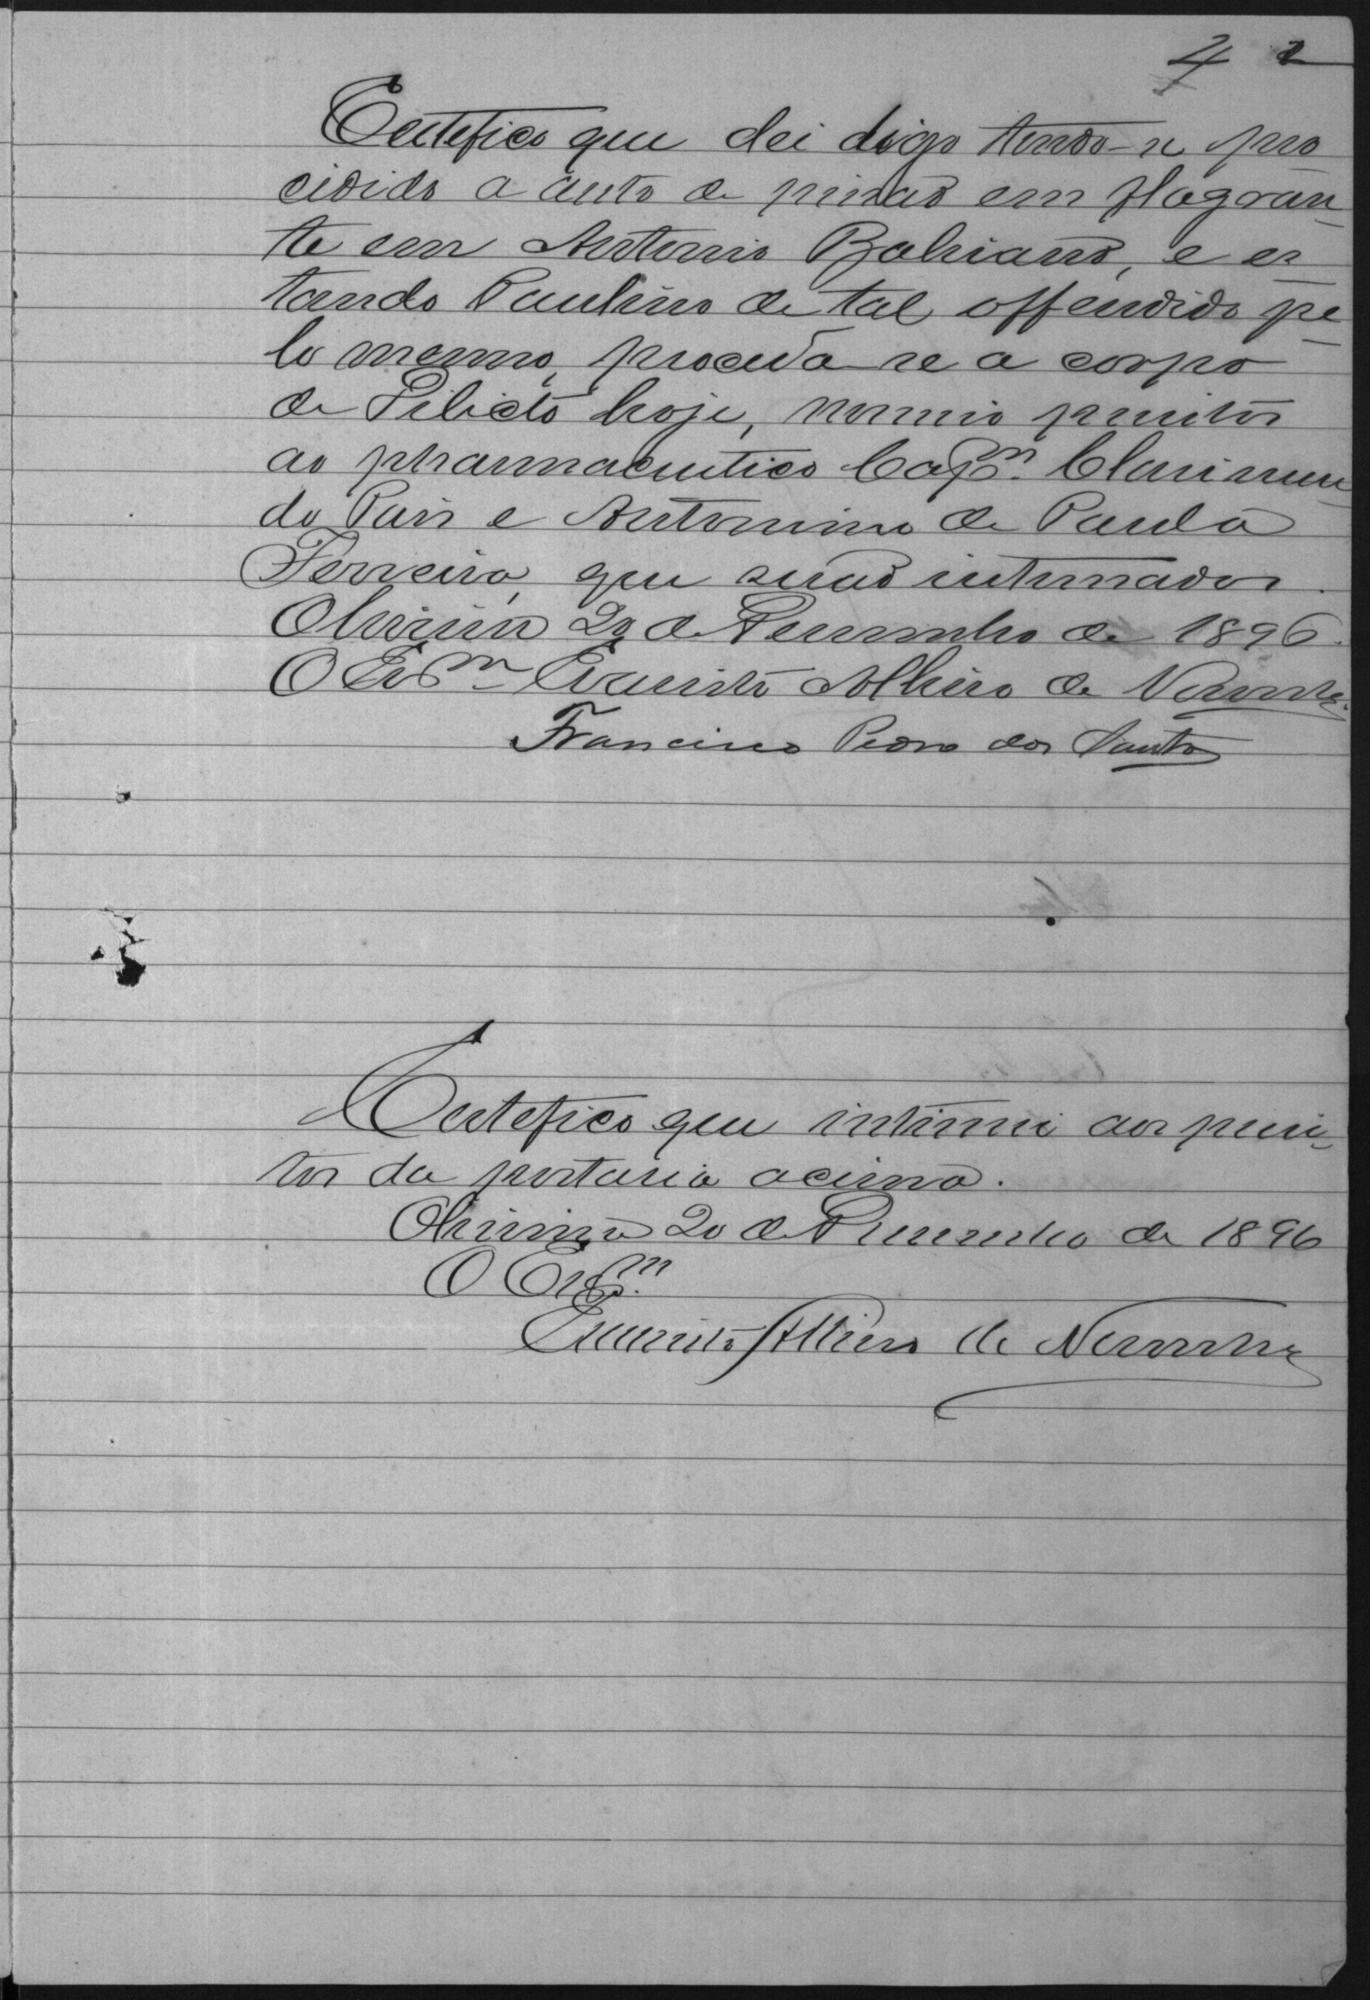 4 2
Certefico que dei digo tendo-se pro
cidido a auto de prisaõ em flagran-
te em Antonio Bahiano, e es-
tando Paulino de tal offendido pe-
lo mesmo, proceda-se a corpo
de Delicto hoje, nomeio peritos
ao pharmaceutico Capm. Clarimun-
do Pais e Antonino de Paula
Ferreira, que seraõ intimados.
20 de Dezembro de 1896.
O Escm Evaristo Albino de
Francisco Pedro dos Santos
Certefico que intimei aos peri-
tos da portaria acima.
20 de Dezembro de 1896
O Escm.
Evaristo Albino de